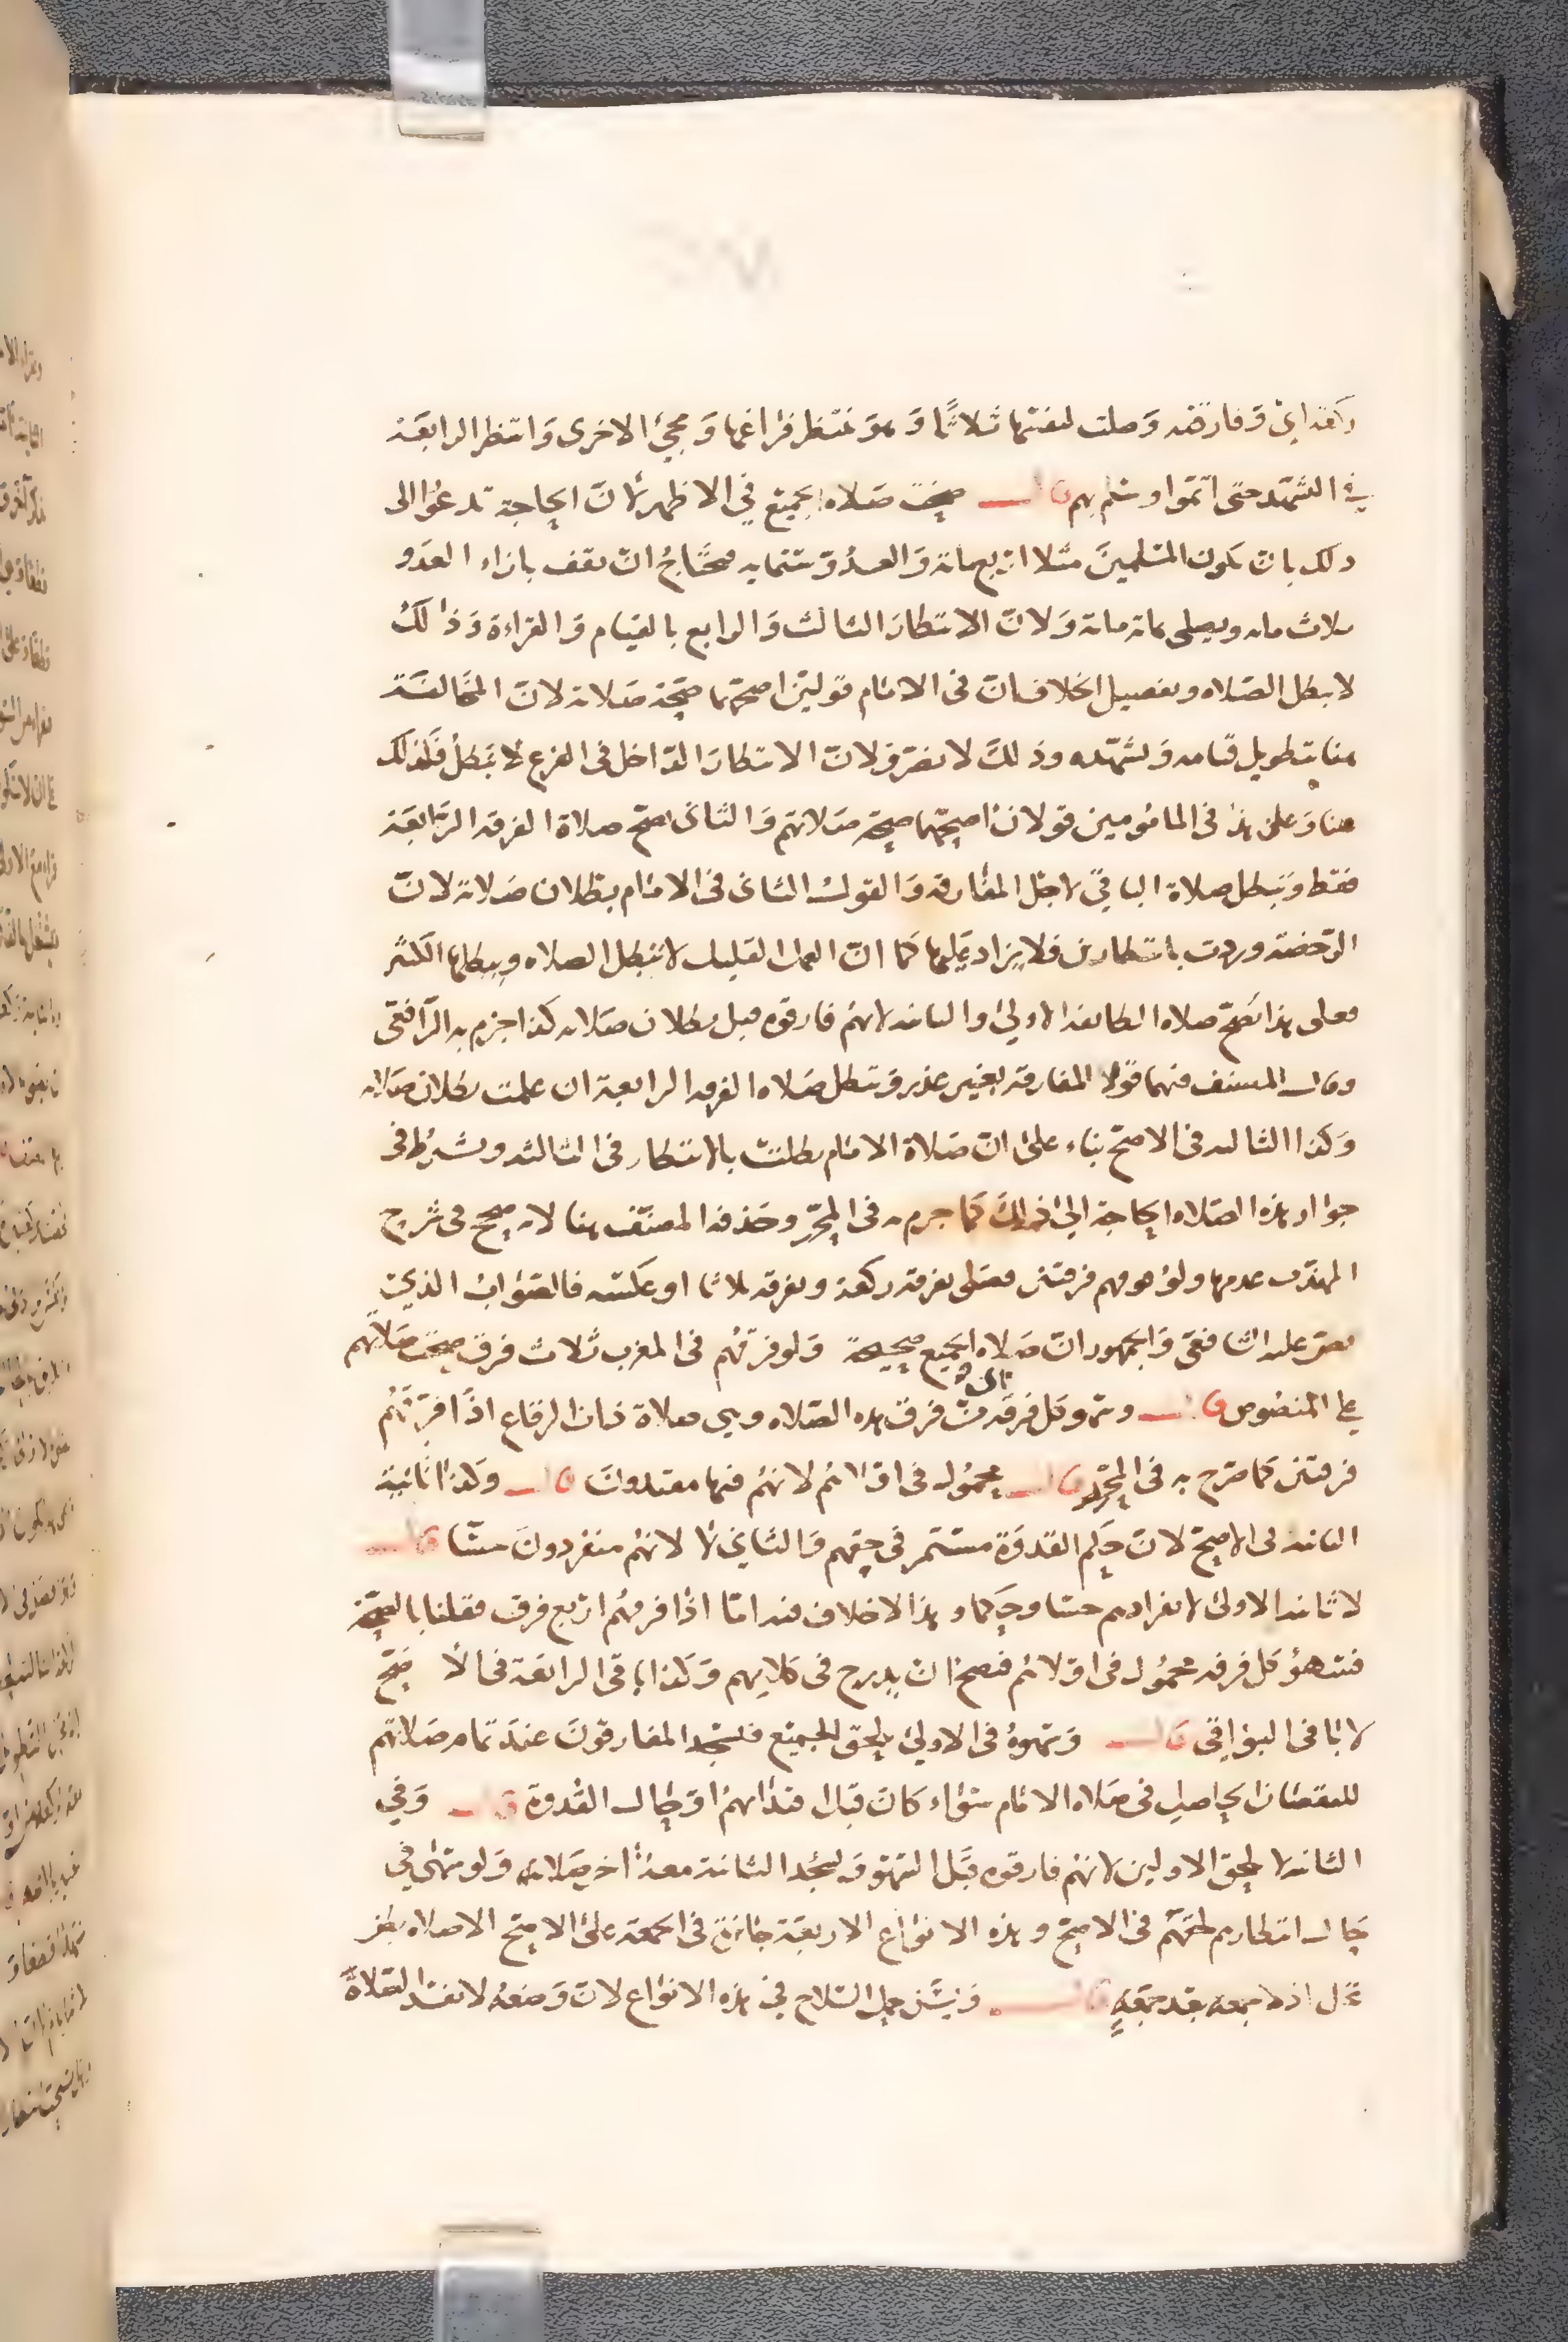 ركعة اي وفارقته وصلت لنفسها ثلاثا وهو منتظر فراغها ومجئ الاخرى وانتظر الرابعة
في التشهد حتى اتموا وسلم بهم قال صحت صلاة الجميع في الاظهر لان الحاجة تدعوا الى
ذلك بان يكون المسلمين مثلا اربعمائة والعدو ستمايه محتاج ان يقف بازاء العدو
ثلاث مايه ويصلي بمائة مائة ولان الانتظار الثالث والرابع بالقيام والقراءة وذلك
لا يبطل الصلاه وتفصيل الخلاف ان في الامام قولين اصحهما صحة صلاته لان المخالفة
هنا بتطويل قيامه وتشهده وذلك لا يضر ولان الانتظار الداخل في الفرع لا يبطل فكذلك
هنا وعلى هذا في المامومين قولان اصحهما صحة صلاتهم والثاني تصح صلاة الفرقه الرابعة
فقط وتبطل صلاة الباقي لاجل المفارقه والقول الثاني في الامام بطلان صلاته لان
الرخصة وردت بانتظارين فلا يزاد عليها كما ان العمل القليل لا يبطل الصلاه ويبطلها الكثير
فعلى هذا تصح صلاه الطائفه الاولى والثانيه لانهم فارقوه قبل بطلان صلاته كذا جزم به الرافعي
وقال المصنف فيهما قولا المفارقة بغير عذر وتبطل صلاه الفرقه الرابعة ان علمت بطلان صلاته
وكذا الثالثه في الاصح بناء على ان صلاة الامام بطلت بالانتظار في الثالثه ويشترط في
جواز هذه الصلاه الحاجة الى ذلك كما جزم به في المحرر وحذفه المصنف هنا لانه صحح في شرح
المهذب عدمها ولو فرقهم فرقتين فصلى بفرقة ركعة وبفرقه ثلاثا او عكسه فالصواب الذي
نص عليه الشافعي والجمهور ان صلاه الجميع صحيحة ولو فرقهم في المغرب ثلاث فرق صحت صلاتهم
على المنصوص قال وسهو كل فرقة من فرق هذه الصلاه وهي صلاة ذات الرقاع اذا فرقهم
فرقتين كما صرح به في المحرر قال محمول في اولاهم لانهم فيها مقتدون قال وكذا ثانية
الثانيه في الاصح لان حكم القدوة مستمر في حقهم والثاني لا لانهم منفردون حسا قال
لا ثانيه الاولى لانفرادهم حسا وحكما وهذا لا خلاف فيه اما اذا فرقهم اربع فرق فقلنا بالصحة
فسهو كل فرقه محمول في اولاهم فيصح ان يدرج في كلامهم وكذا باقي الرابعة في الاصح
لا باقي البواقي قال وسهوه في الاولى يلحق الجميع فيسجد المفارقون عند تمام صلاتهم
للنقصان الحاصل في صلاه الامام سواء كان قبل اقتدائهم او حال القدوة قال وفي
الثانيه لا يلحق الاولين لانهم فارقوه قبل السهو وتسجد الثانية معه اخر صلاته ولو سهى في
حال انتظارهم لحقهم في الاصح وهذه الانواع الاربعة جائزة في الجمعة على الاصح الا صلاه بطن
نخل اذ لا جمعه بعد جمعة قال ويسن حمل السلاح في هذه الانواع لان وضعه لا يفسد الصلاة